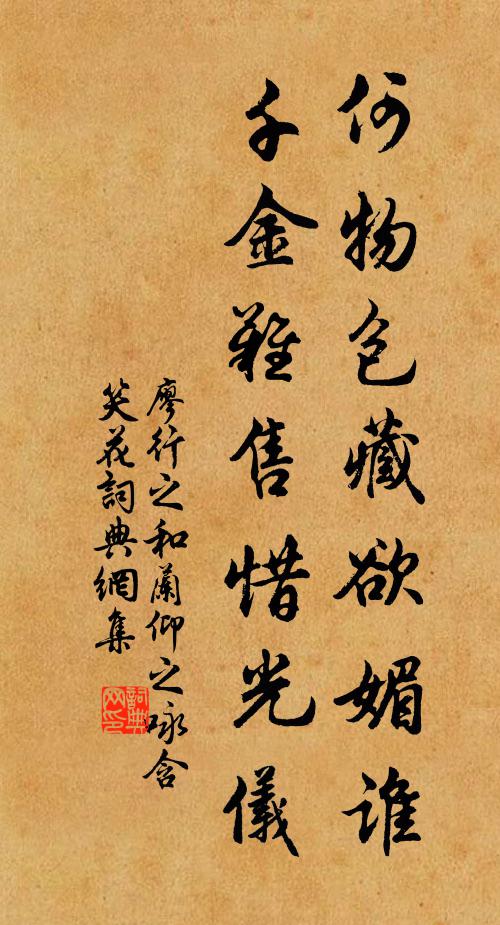 何物包藏欲媚誰
千金難售惜光儀
廖行之和蘭仰之咏含
笑花詞典網集
詞典
网印